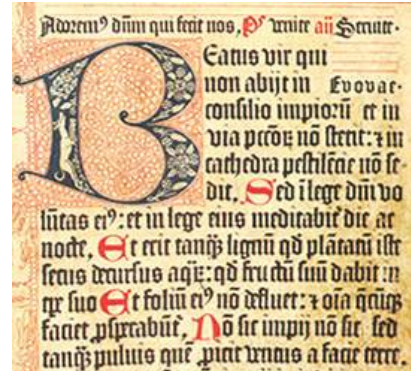 Adorem⁹ dn̄m qui fecit nos, Ps̄ venite añ Seruite.
Beatus vir qui
non abijt in Evovae.
consilio impioꝝ̄ et in
via pcc̄oꝝ nō stetit: ⁊ in
cathedra pestilēcie nō se⸗
dit, Sed ī lege dn̄i vo
lūtas ei⁹: et in lege eius meditabit̄ die ac
nocte, Et erit tanq̄ꝫ lignū qd̄ plātatū iste
secus decursus aqꝝ̄: qd̄ fructū suū dabit: in
tꝑe suo Et foliū ei⁹ nō defluet: ⁊ oīa qͨūqꝫ
faciet ꝓsꝑabūt̄, Nō sic impij nō sic sed
tanq̄ꝫ puluis quē ꝓicit ventus a facie terre.